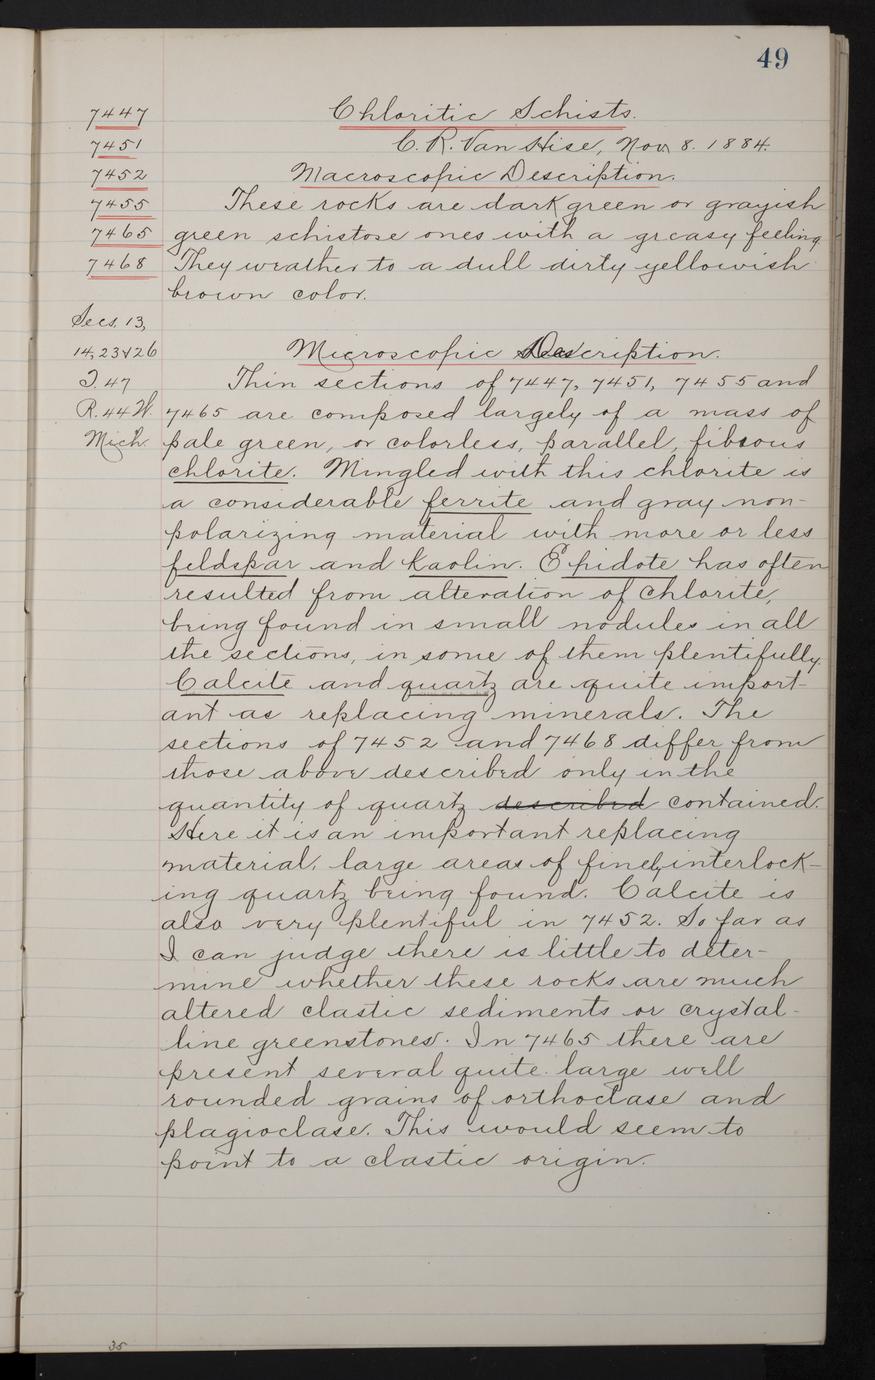 49
7447
Chloritic Schists.
7451
C. R. Van Hise, Nov. 8. 1884.
7452
Macroscopic Description.
7455
These rocks are dark green or grayish
7465
green schistose ones with a greasy feeling
7468
They weather to a dull dirty yellowish
brown color.
Secs. 13,
14, 23 & 26
Microscopic Description.
T. 47
Thin sections of 7447, 7451, 7455 and
R. 44 W.
7465 are composed largely of a mass of
Mich.
pale green, or colorless, parallel, fibrous
chlorite. Mingled with this chlorite is
a considerable ferrite and gray non-
polarizing material with more or less
feldspar and Kaolin. Epidote has often
resulted from alteration of chlorite,
being found in small nodules in all
the sections, in some of them plentifully.
Calcite and quartz are quite import-
ant as replacing minerals. The
sections of 7452 and 7468 differ from
those above described only in the
quantity of quartz described contained.
Here it is an important replacing
material, large areas of finely interlock-
ing quartz being found. Calcite is
also very plentiful in 7452. So far as
I can judge there is little to deter-
mine whether these rocks are much
altered clastic sediments or crystal-
line greenstones. In 7465 there are
present several quite large well
rounded grains of orthoclase and
plagioclase. This would seem to
point to a clastic origin.
35